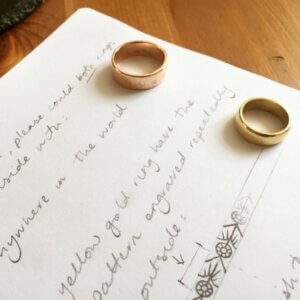 , please could both rings
side with:
anywhere in the world
yellow gold ring have the
pattern engraved repeatedly
outside: